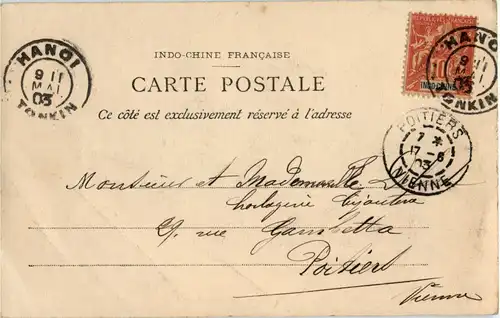 HANOI
9 11
MAI
03
TONKIN
INDO-CHINE FRANÇAISE
CARTE POSTALE
Ce côté est exclusivement réservé à l'adresse
INDO-CHINE
10
HANOI
9 11
MAI
03
TONKIN
POITIERS
7 *
17 - 6
03
VIENNE
Monsieur et Mademoiselle
horlogerie bijouterie
29, rue Gambetta
Poitiers
Vienne